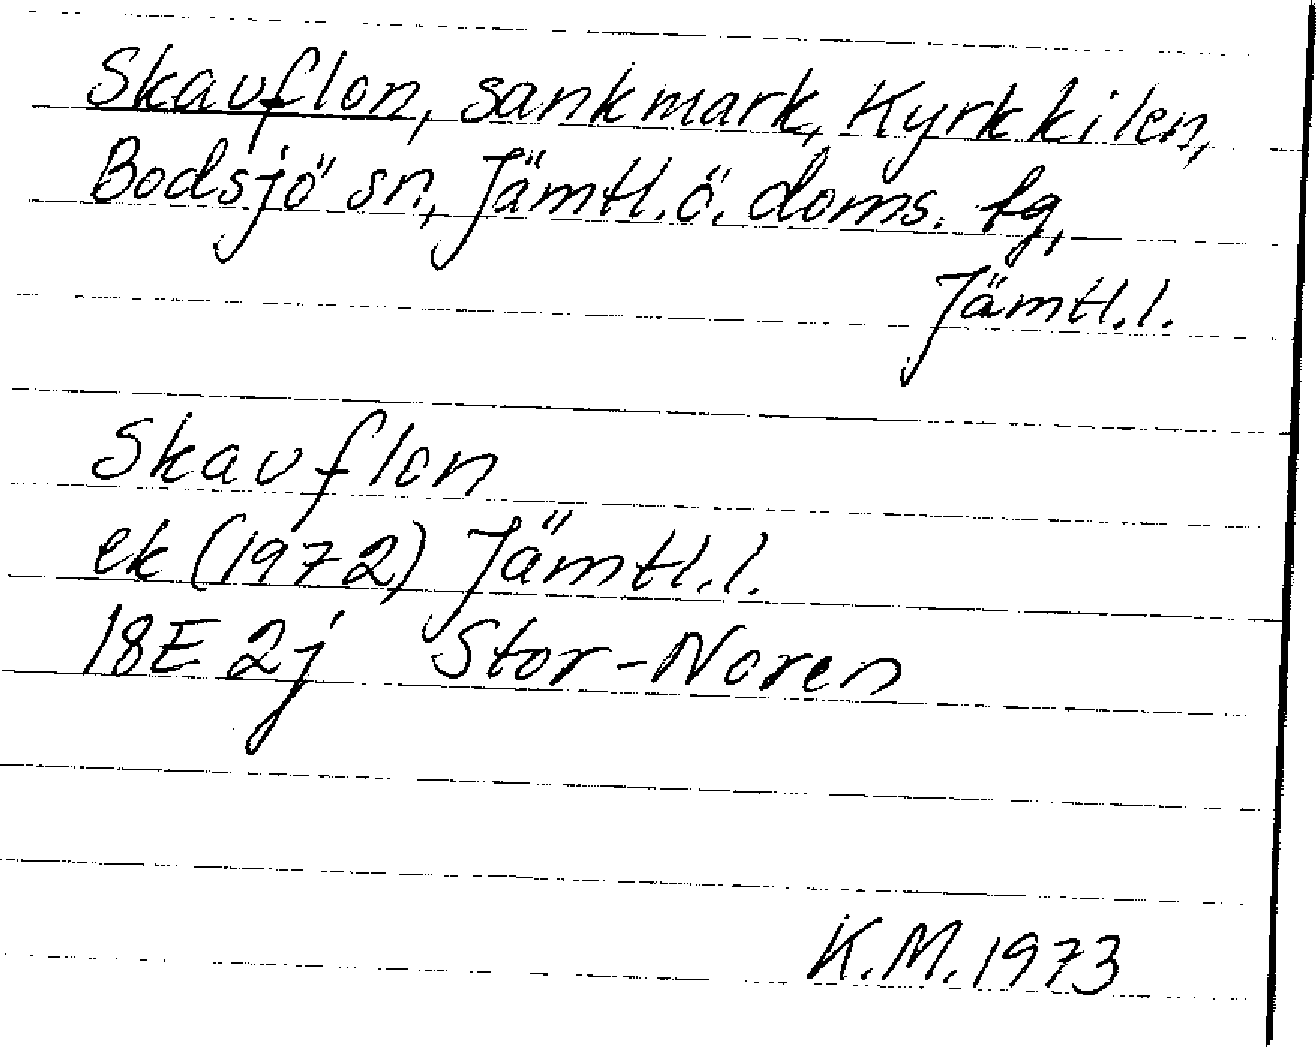 Skauflon, sankmark, Kyrkkilen,
Bodsjö sn, Jämtl. ö. doms. tg,
Jämtl. l.
Skauflon
ek (1972) Jämtl. l.
18E 2j Stor-Noren
K.M. 1973